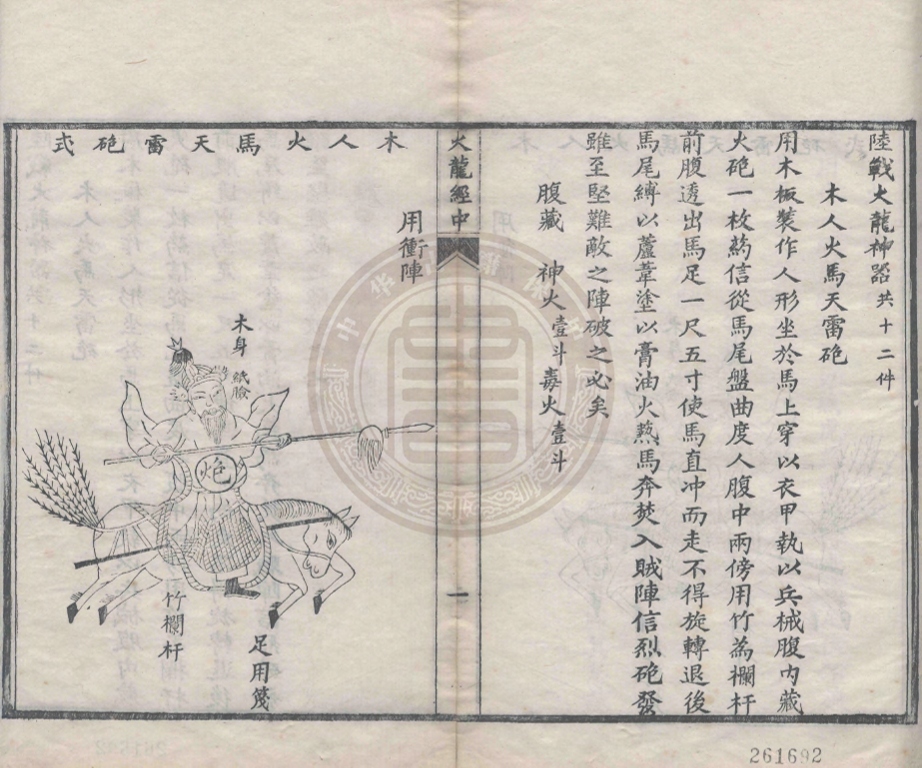 陸戰火龍神器共十二件
木人火馬天雷砲
用木板裝作人形坐於馬上穿以衣甲執以兵械腹內藏
火砲一枚藥信從馬尾盤曲度人腹中兩傍用竹為欄杆
前腹透出馬足一尺五寸使馬直冲而走不得旋轉退後
馬尾縛以蘆葦塗以膏油火爇馬奔焚入賊陣信烈砲發
雖至堅難敵之陣破之必矣
腹藏 神火壹斗毒火壹斗
火龍經中
一
木人火馬天雷砲式
用衝陣
木身
紙臉
炮
竹欄杆
足用篾
261692